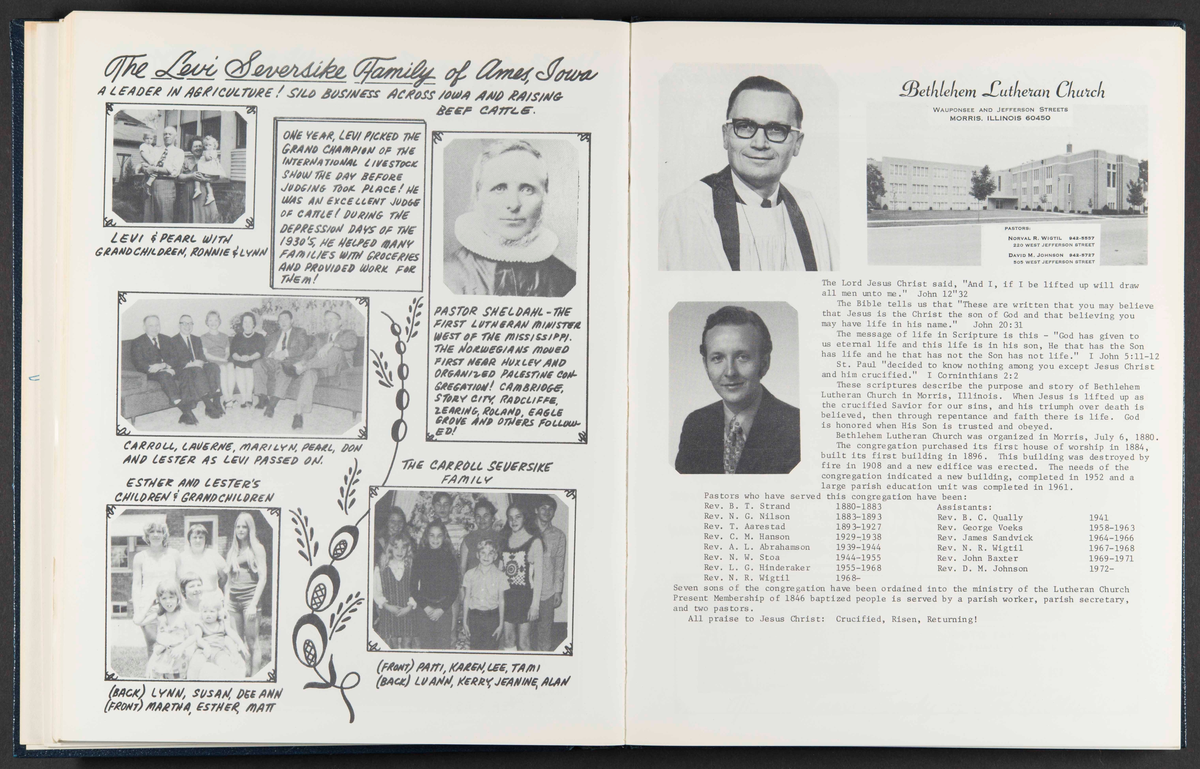 The Levi Seversike Family of Ames, Iowa
A LEADER IN AGRICULTURE! SILO BUSINESS ACROSS IOWA AND RAISING
BEEF CATTLE.
LEVI & PEARL WITH
GRANDCHILDREN, RONNIE & LYNN
ONE YEAR, LEVI PICKED THE
GRAND CHAMPION OF THE
INTERNATIONAL LIVESTOCK
SHOW THE DAY BEFORE
JUDGING TOOK PLACE! HE
WAS AN EXCELLENT JUDGE
OF CATTLE! DURING THE
DEPRESSION DAYS OF THE
1930'S, HE HELPED MANY
FAMILIES WITH GROCERIES
AND PROVIDED WORK FOR
THEM!
PASTOR SHELDAHL - THE
FIRST LUTHERAN MINISTER
WEST OF THE MISSISSIPPI.
THE NORWEGIANS MOVED
FIRST NEAR HUXLEY AND
ORGANIZED PALESTINE CON-
GREGATION! CAMBRIDGE,
STORY CITY, RADCLIFFE,
ZEARING, ROLAND, EAGLE
GROVE AND OTHERS FOLLOW-
ED!
CARROLL, LAVERNE, MARILYN, PEARL, DON
AND LESTER AS LEVI PASSED ON.
ESTHER AND LESTER'S
CHILDREN & GRANDCHILDREN
THE CARROLL SEVERSIKE
FAMILY
(BACK) LYNN, SUSAN, DEE ANN
(FRONT) MARTHA, ESTHER, MATT
(FRONT) PATTI, KAREN, LEE, TAMI
(BACK) LUANN, KERRY, JEANINE, ALAN
Bethlehem Lutheran Church
WAUPONSEE AND JEFFERSON STREETS
MORRIS, ILLINOIS 60450
PASTORS:
NORVAL R. WIGTIL 942-5507
220 WEST JEFFERSON STREET
DAVID M. JOHNSON 942-5727
505 WEST JEFFERSON STREET
The Lord Jesus Christ said, "And I, if I be lifted up will draw
all men unto me." John 12"32
The Bible tells us that "These are written that you may believe
that Jesus is the Christ the son of God and that believing you
may have life in his name." John 20:31
The message of life in Scripture is this - "God has given to
us eternal life and this life is in his son, He that has the Son
has life and he that has not the Son has not life." I John 5:11-12
St. Paul "decided to know nothing among you except Jesus Christ
and him crucified." I Corninthians 2:2
These scriptures describe the purpose and story of Bethlehem
Lutheran Church in Morris, Illinois. When Jesus is lifted up as
the crucified Savior for our sins, and his triumph over death is
believed, then through repentance and faith there is life. God
is honored when His Son is trusted and obeyed.
Bethlehem Lutheran Church was organized in Morris, July 6, 1880.
The congregation purchased its first house of worship in 1884,
built its first building in 1896. This building was destroyed by
fire in 1908 and a new edifice was erected. The needs of the
congregation indicated a new building, completed in 1952 and a
large parish education unit was completed in 1961.
Pastors who have served this congregation have been:
Rev. B. T. Strand 1880-1883
Rev. N. G. Nilson 1883-1893
Rev. T. Aarestad 1893-1927
Rev. C. M. Hanson 1929-1938
Rev. A. L. Abrahamson 1939-1944
Rev. N. W. Stoa 1944-1955
Rev. L. G. Hinderaker 1955-1968
Rev. N. R. Wigtil 1968-
Assistants:
Rev. B. C. Qually 1941
Rev. George Voeks 1958-1963
Rev. James Sandvick 1964-1966
Rev. N. R. Wigtil 1967-1968
Rev. John Baxter 1969-1971
Rev. D. M. Johnson 1972-
Seven sons of the congregation have been ordained into the ministry of the Lutheran Church
Present Membership of 1846 baptized people is served by a parish worker, parish secretary,
and two pastors.
All praise to Jesus Christ: Crucified, Risen, Returning!